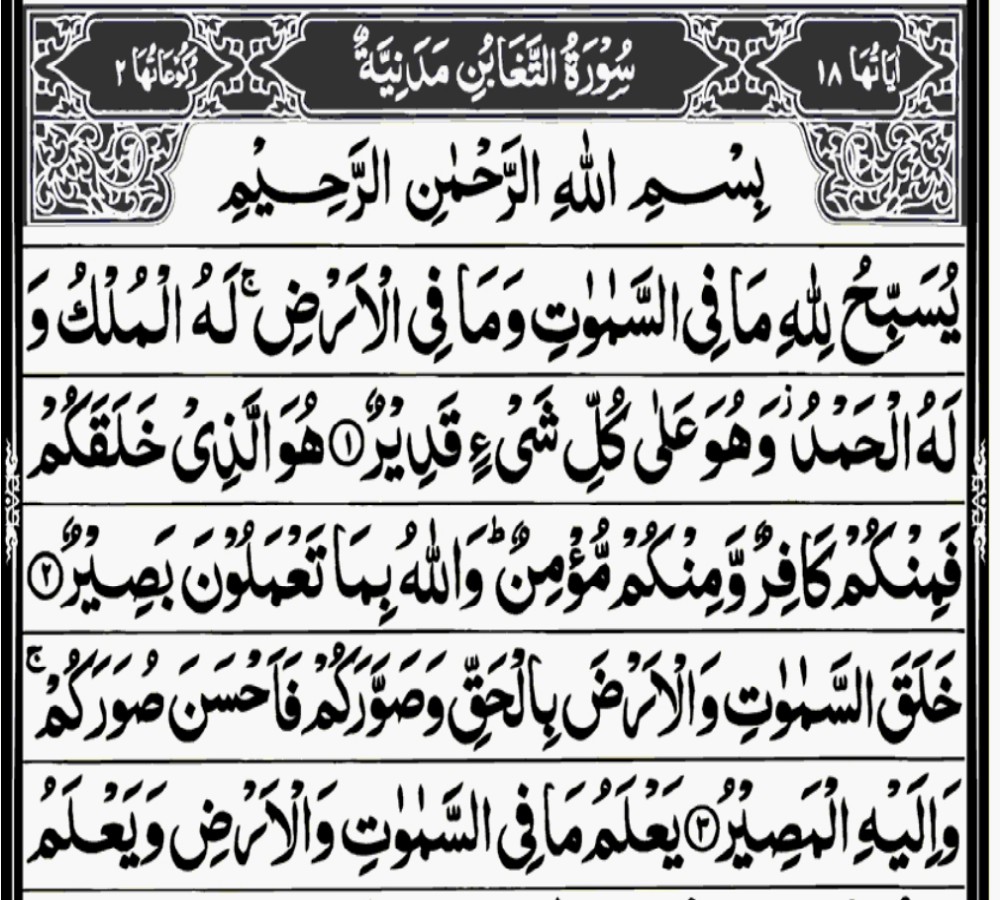 اٰيَاتُهَا ١٨ سُوْرَةُ التَّغَابُنِ مَدَنِيَّةٌ رُكُوْعَاتُهَا ٢
بِسْمِ اللّٰهِ الرَّحْمٰنِ الرَّحِيْمِ
يُسَبِّحُ لِلّٰهِ مَا فِى السَّمٰوٰتِ وَمَا فِى الْاَرْضِ ۚ لَهُ الْمُلْكُ وَ
لَهُ الْحَمْدُ ؗ وَهُوَ عَلٰى كُلِّ شَىْءٍ قَدِيْرٌ ١ هُوَ الَّذِىْ خَلَقَكُمْ
فَمِنْكُمْ كَافِرٌ وَّمِنْكُمْ مُّؤْمِنٌ ؕ وَاللّٰهُ بِمَا تَعْمَلُوْنَ بَصِيْرٌ ٢
خَلَقَ السَّمٰوٰتِ وَالْاَرْضَ بِالْحَقِّ وَصَوَّرَكُمْ فَاَحْسَنَ صُوَرَكُمْ ۚ
وَاِلَيْهِ الْمَصِيْرُ ٣ يَعْلَمُ مَا فِى السَّمٰوٰتِ وَالْاَرْضِ وَيَعْلَمُ